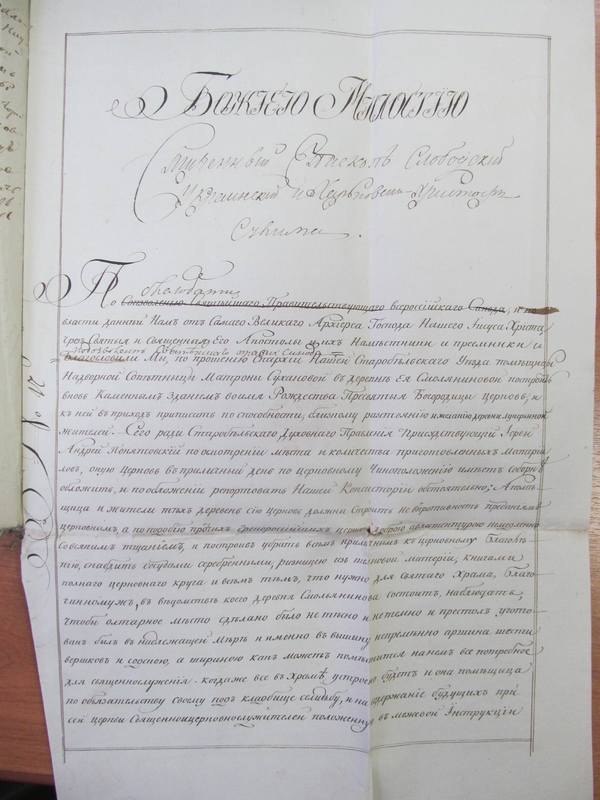 Божіею Милостію
Смиренный Епископъ Слободскій
Украинскій и Харьковскій Христофоръ
Сулима.
благодати
По Соизволенію Святѣйшаго Правительствующаго всероссійскаго Синода, и
власти данной Намъ отъ Самаго Великаго Архіерея Господа Нашего Іисуса Христа
чрезъ Святыя и Священныя Его Апостолы и ихъ Намѣстники и преемники и
Святѣйшаго Синода
Благословили Мы, по прошенію Епархіи Нашей Старобѣльскаго Уѣзда помѣщицы
Надворной Совѣтницы Матроны Сухановой въ деревнѣ ея Смоляниновой построить
вновь Каменнымъ Зданіемъ во имя Рождества Пресвятыя Богородицы церковь, и
къ ней въ приходъ приписать по способности, близкому разстоянію и желанію деревни
жителей. Чего ради Старобѣльскаго Духовнаго Правленія Присудствующій Іерей
Андрей Понятовскій по осмотреніи мѣста и количества приготовленныхъ Матеріа
ловъ, оную Церковь въ приличный день по церковному Чиноположенію имѣетъ соборнѣ
обложить, и по обложеніи репортовать Нашей Консисторіи обстоятельно; А помѣ
щица и жители тѣхъ деревень сію церковь должны строить не въ противность преданіямъ
церковнымъ, а по подобію прочихъ церквей доброю архитектурою немедленно
со всякимъ тщаніемъ, и построивъ убрать всѣмъ приличнымъ къ церковному благолѣ
пію, снабдить сосудами серебренными, ризницею изъ матеріи, книгами
полнаго церковнаго круга и всѣмъ тѣмъ, что нужно для святаго Храма, Благо
чинному жъ, въ вѣдомствѣ коего деревня Смольянинова состоитъ, наблюдать,
чтобы олтарное мѣсто сдѣлано было не тѣсно и не темно и престолъ угото
ванъ былъ въ надлежащей мѣрѣ и именно въ вышину непремѣнно аршина шести
вершковъ и содскою, а шириною какъ можетъ помѣститься на немъ все потребное
для священнослуженія. когда же все въ Храмѣ устроено будетъ и она помѣщица
по обязательству своему подъ кладбище селидьбу, и на содержаніе будущихъ при
сей церкви Священноцерковнослужителей положенную въ межевой Інструкціи